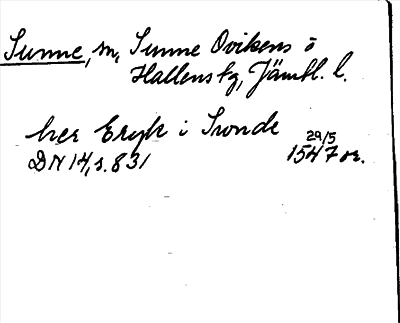 Sunne, sn, Sunne Ovikens o
Hallens tg, Jämtl. l.
her Eryk i Swnde
29/5
DN 14, s. 831 1547 or.